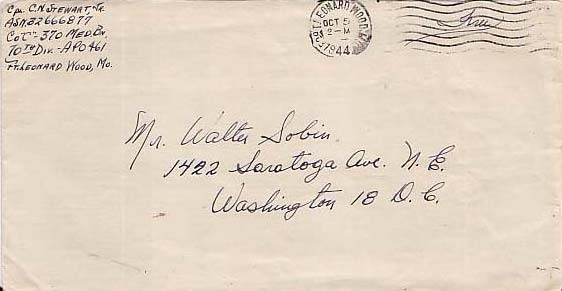 Cpl. C.N. Stewart, Jr.
ASN.32666877
Co "C"- 370 Med. Bn.
70th Div. - APO 461
Ft. Leonard Wood, Mo.
FORT LEONARD WOOD, MO.
OCT 5
2-M
1944
Free
Mr. Walter Sobin
1422 Saratoga Ave. N.E.
Washington 18 D.C.